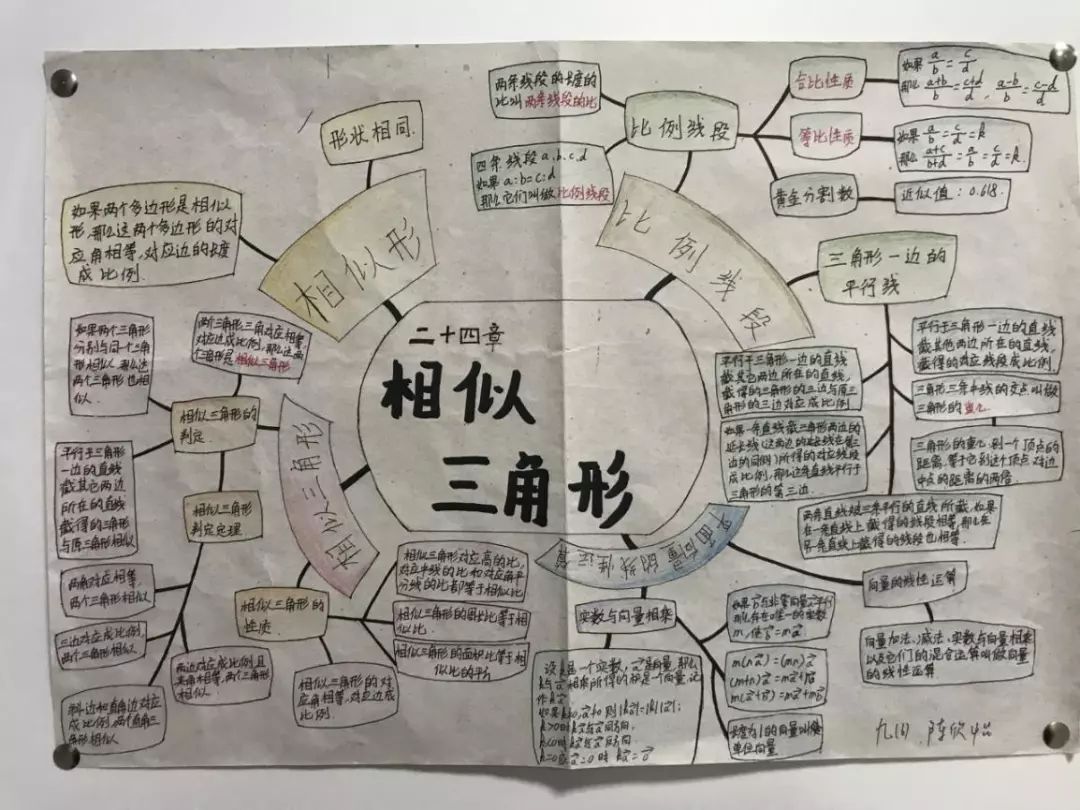 二十四章
相似
三角形
相似形
形状相同.
如果两个多边形是相似
形,那么这两个多边形的对
应角相等,对应边的长度
成比例.
比例线段
比例线段
两条线段的长度的
比叫两条线段的比
四条线段a、b、c、d
如果a:b=c:d
那么它们叫做比例线段
合比性质
如果 a/b = c/d
那么 a+b/b = c+d/d , a-b/b = c-d/d
等比性质
如果 a/b = c/d = k
那么 a+c/b+d = a/b = c/d = k.
黄金分割数
近似值:0.618.
三角形一边的
平行线
平行于三角形一边的直线
截其他两边所在的直线,
截得的对应线段成比例.
平行于三角形一边的直线
截其它两边所在的直线,
截得的三角形的三边与原三
角形的三边对应成比例
三角形三条中线的交点叫做
三角形的重心
如果一条直线截三角形两边的
延长线(这两边的延长线在第三
边的同侧)所得的对应线段
成比例,那么这条直线平行于
三角形的第三边.
三角形的重心到一个顶点的
距离,等于它到这个顶点对边
中点的距离的两倍
两条直线被三条平行的直线所截,如果
在一条直线上截得的线段相等,那么在
另一条直线上截得的线段也相等.
相似三角形
相似三角形的
判定.
如果两个三角形
分别与同一个三角
形相似,那么这
两个三角形也相
似.
两个三角形,三角对应相等,
对应边成比例,那么这两
个三角形是相似三角形
相似三角形
判定定理
平行于三角形
一边的直线
截其它两边
所在的直线
截得的三角形
与原三角形相似
两角对应相等,
两个三角形相似
三边对应成比例,
两个三角形相似.
斜边和直角边对应
成比例,两个直角三
角形相似
两边对应成比例且
夹角相等,两个三角形
相似.
相似三角形的
性质.
相似三角形对应高的比,
对应中线的比和对应角平
分线的比都等于相似比
相似三角形的周长比等于相
似比.
相似三角形的面积比等于相
似比的平方
相似三角形的对
应角相等,对应边成
比例.
平面向量的线性运算
实数与向量相乘
k>0时
长度为1的向量叫做
单位向量
m(na)=(mn)a
向量的线性运算
向量加法、减法、实数与向量相乘
以及它们的混合运算叫做向量
的线性运算.